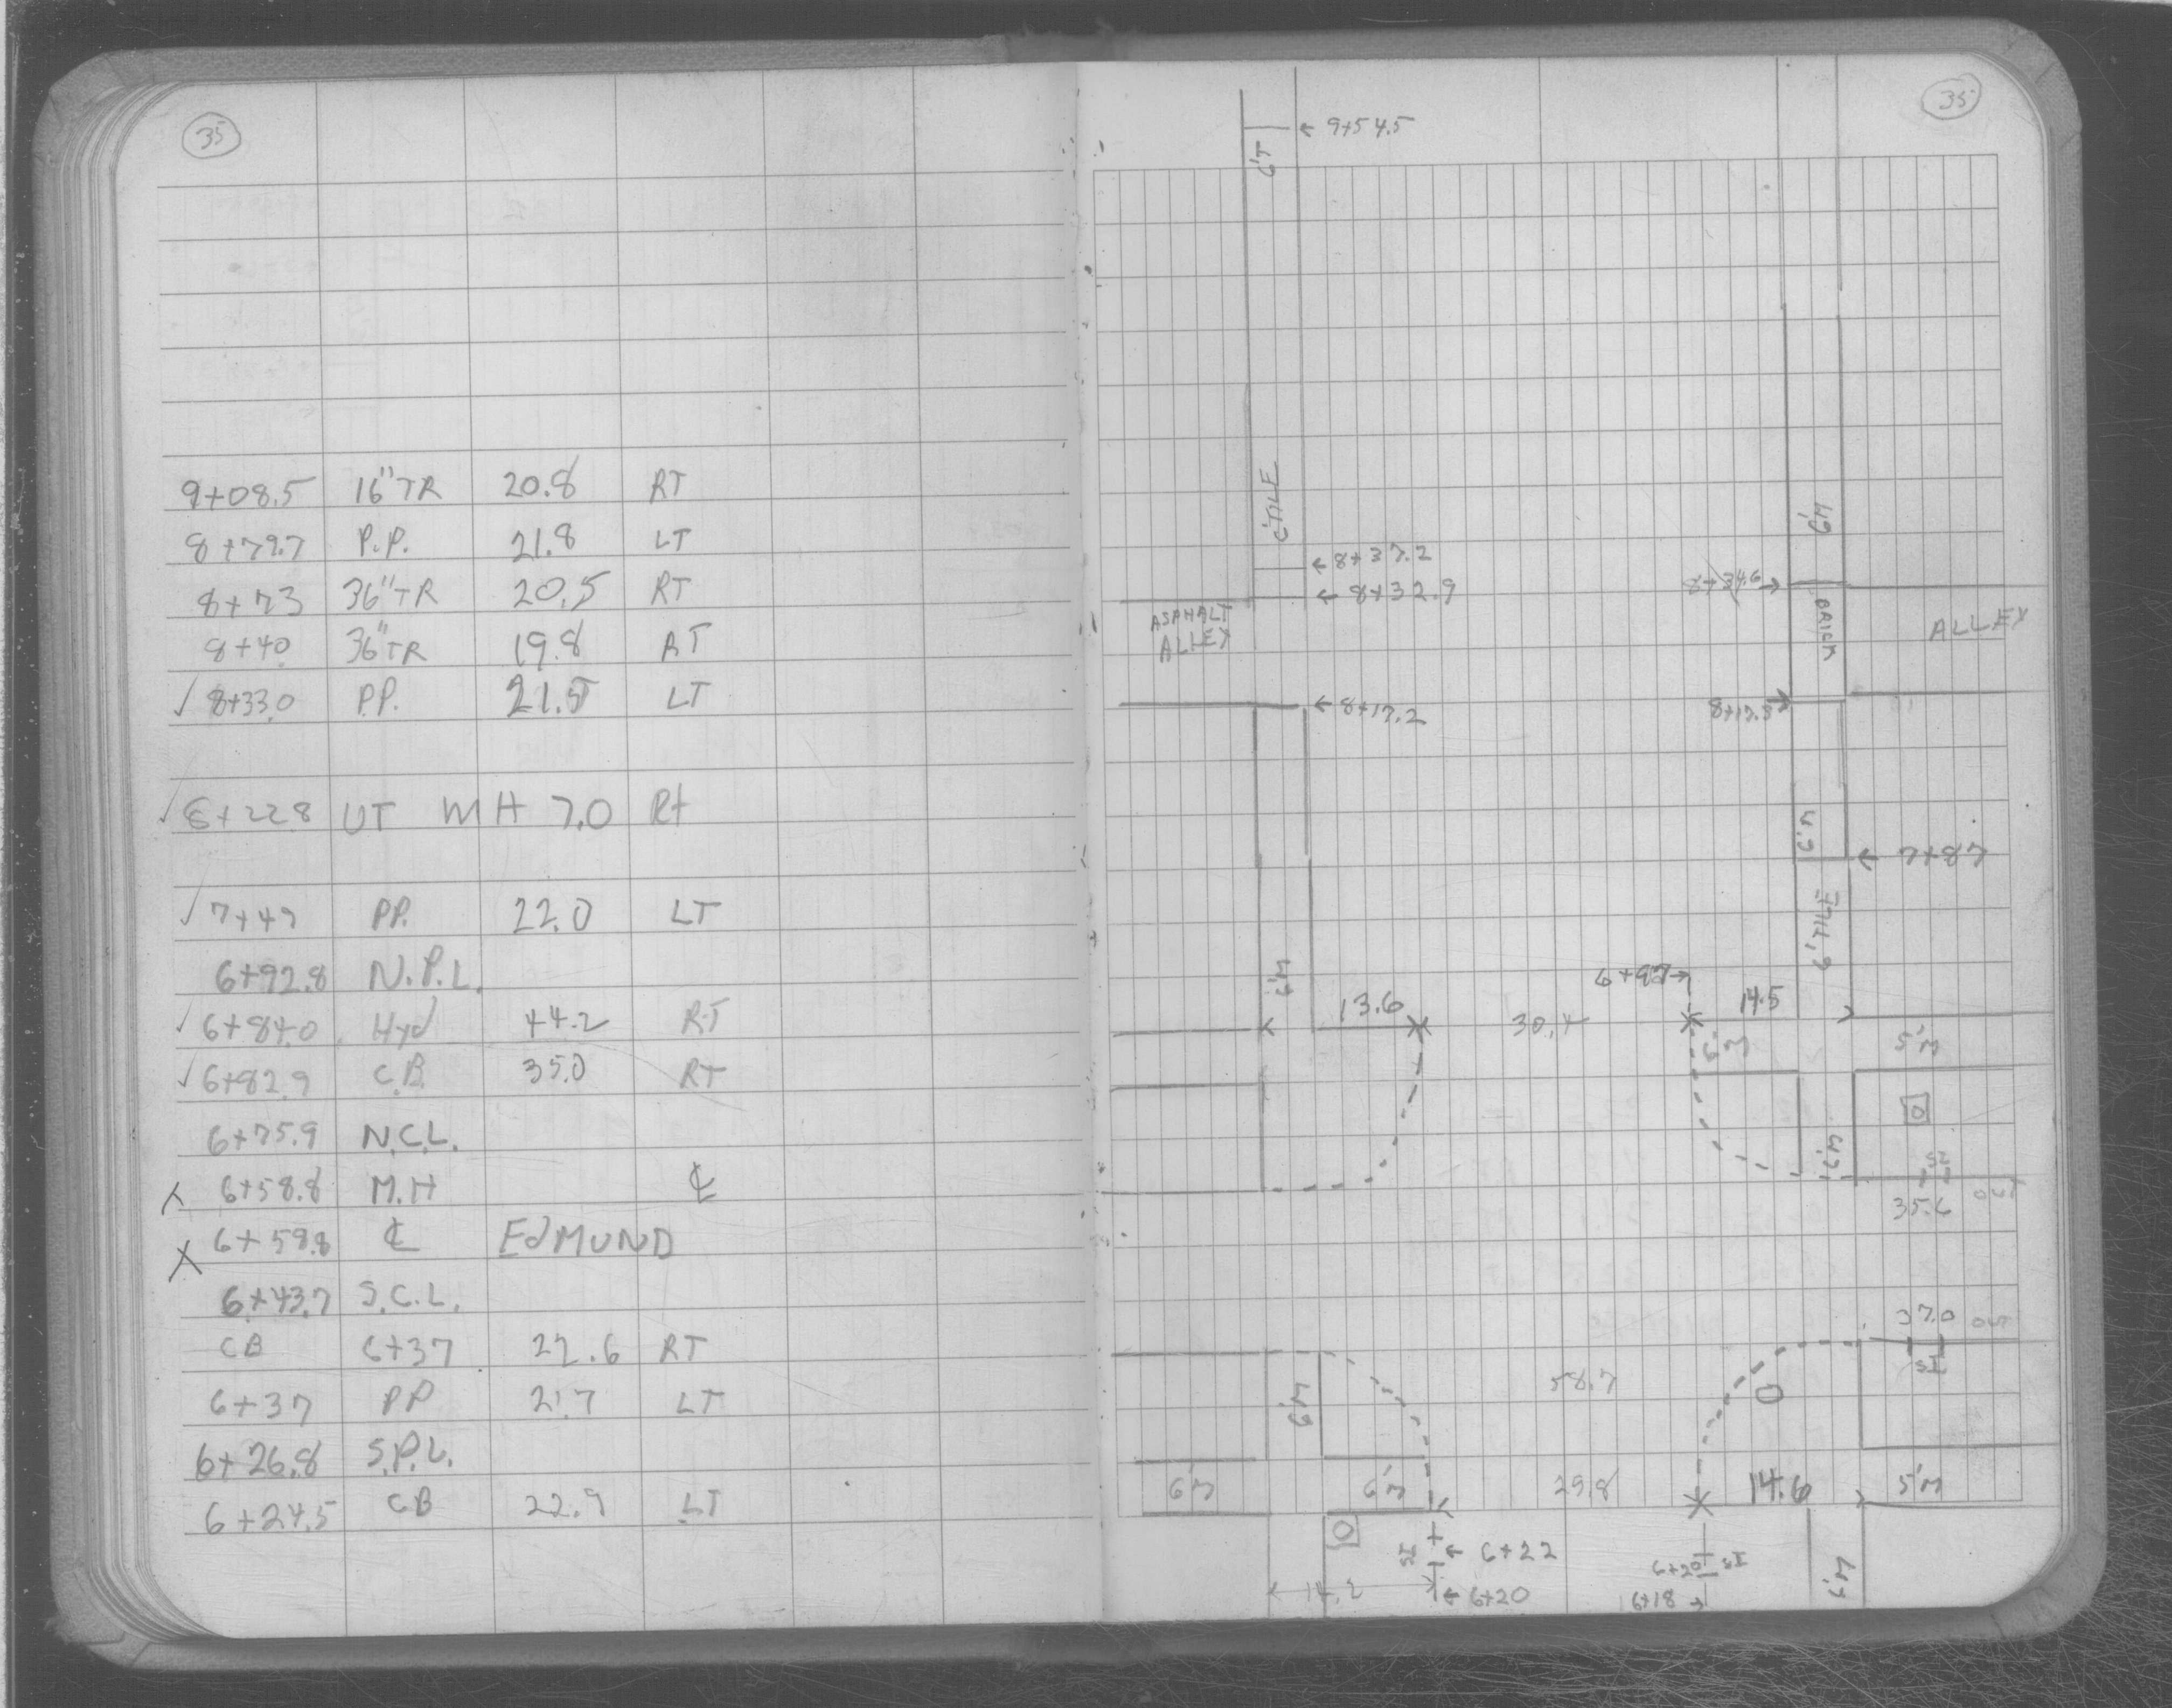 35
9+08.5 16"TR 20.8 RT
8+79.7 P.P. 21.8 LT
8+73 36"TR 20.5 RT
8+40 36"TR 19.8 RT
✓ 8+33.0 P.P. 21.5 LT
✓ 8+22.8 UT MH 7.0 Rt
✓ 7+49 P.P. 22.0 LT
6+92.8 N.P.L.
✓ 6+84.0 Hyd 44.2 RT
✓ 6+82.9 C.B. 35.0 RT
6+75.9 N.C.L.
6+58.8 M.H ℄
X 6+59.8 ℄ EdMUND
6+43.7 S.C.L.
CB 6+37 22.6 RT
6+37 PP 21.7 LT
6+26.8 S.P.L.
6+24.5 CB 22.9 LT
35
← 9+54.5
6'T
6'TILE
6'M
← 8+37.2
← 8+32.9
8+34.6 →
ASPHALT
ALLEY
BRICK
ALLEY
← 8+17.2
8+17.3 →
6'M
← 7+87
6'TILE
6'M
6+97 →
13.6
30.4
14.5
5'M
6'M
SI
35.6 OUT
37.0 OUT
SI
58.7
6'M
6'M
6'M
29.8
14.6
5'M
SI
← 6+22
6+20 SI
14.2
← 6+20
6+18 →
6'M